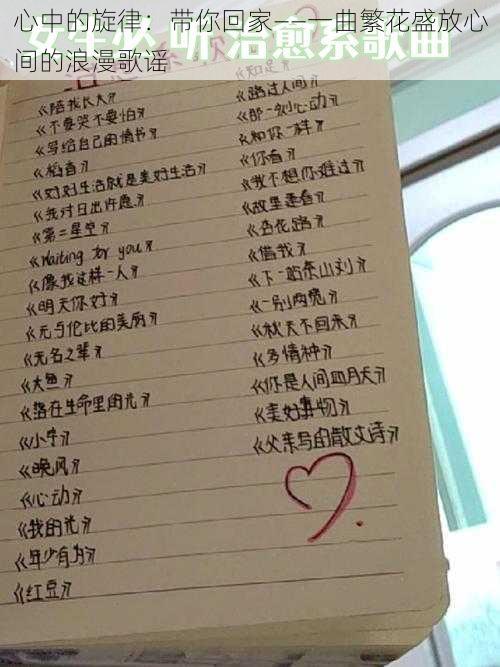 心中的旋律：带你回家——一曲繁花盛放心
间的浪漫歌谣
女生必听治愈系歌曲
《陪我长大》
《不要哭不要怕》
《写给自己的情书》
《稻香》
《好好生活就是美好生活》
《我对日出许愿》
《第二星空》
《Waiting for you》
《像我这样一人》
《明天你好》
《无与伦比的美丽》
《无名之辈》
《大鱼》
《落在生命里的光》
《小宇》
《晚风》
《心动》
《我的光》
《年少有为》
《红豆》
《知足》
《路过人间》
《那一刻心动》
《和你一样》
《你看》
《我不想你难过》
《故里逢春》
《杏花路》
《借我》
《下一站茶山刘》
《一别两宽》
《秋天不回来》
《多情种》
《你是人间四月天》
《美好事物》
《父亲写的散文诗》